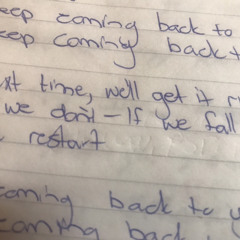 eep coming back to
eep coming back t
xt time, we'll get it r
we don't - If we fall
restart
coming back to y
coming back